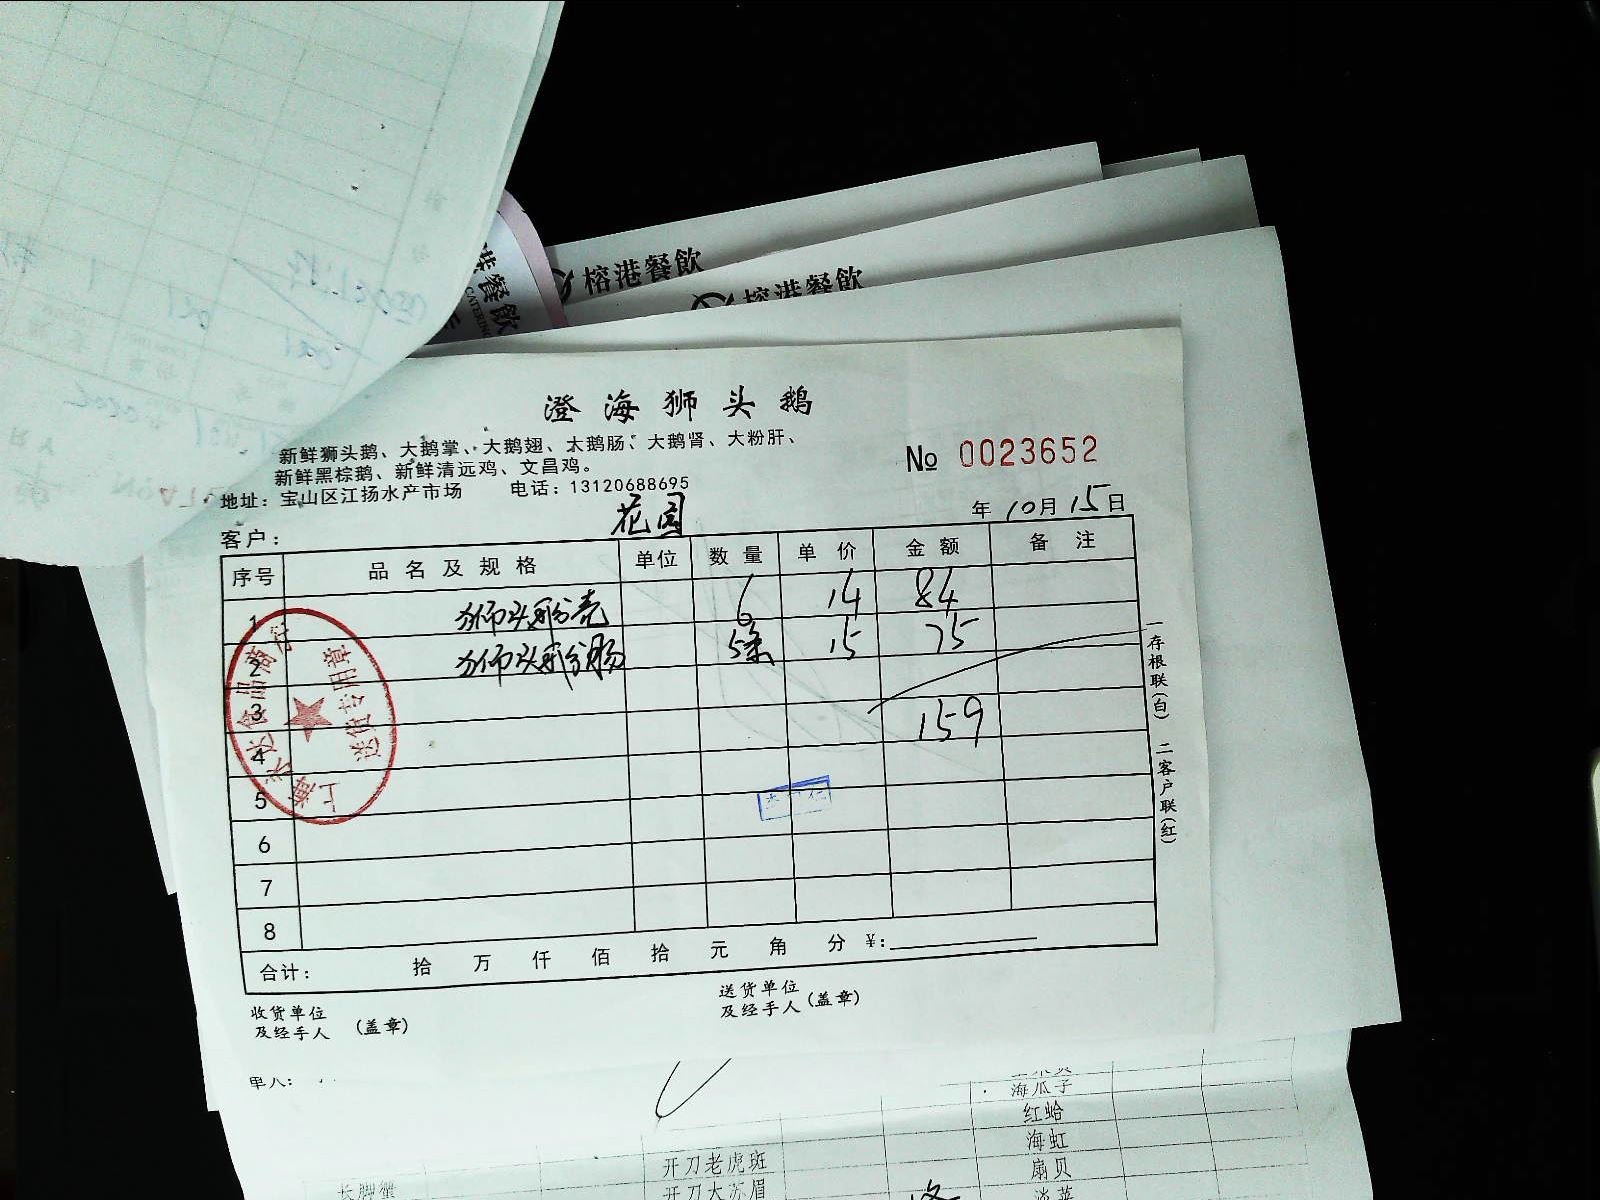 榕港餐飲
榕港餐飲
港餐飲
CATERING
澄海狮头鹅
新鲜狮头鹅、大鹅掌、大鹅翅、大鹅肠、大鹅肾、大粉肝、
新鲜黑棕鹅、新鲜清远鸡、文昌鸡。
№ 0023652
地址：宝山区江扬水产市场 电话：13120688695
客户： 花园 年 10月 15日
序号 品名及规格 单位 数量 单价 金额 备注
1 狮头鹅 6 14 84
2 狮头鹅肠 5条 15 75
3 159
4
5
6
7
8
合计： 拾 万 仟 佰 拾 元 角 分 ¥:
一存根联(白) 二客户联(红)
收货单位
及经手人 (盖章)
送货单位
及经手人 (盖章)
送货专用章
单人：
海瓜子
红蛤
海虹
开刀老虎斑 扇贝
长脚蟹 开刀大苏眉 淡菜